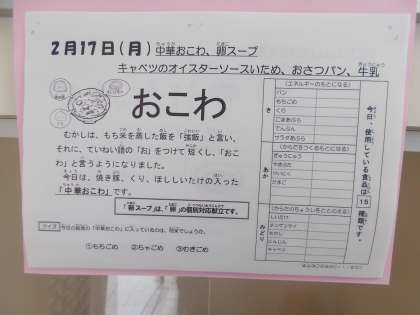 2月17日(月) 中華おこわ、卵スープ
キャベツのオイスターソースいため、おさつパン、牛乳
おこわ
むかしは、もち米を蒸した飯を「強飯」と言い、
それに、ていねい語の「お」をつけて短くし、「おこ
わ」と言うようになりました。
今日は、焼き豚、くり、ほししいたけの入った
「中華おこわ」です。
「卵スープ」は、「卵」の個別対応献立です。
クイズ
今日の給食の「中華おこわ」に入っているのは、何米でしょうか。
①もちごめ ②ちゃごめ ③むぎごめ
今日、使用している食品は 15 種類です。
き
(エネルギーのもとになる)
パン
もちごめ
さとう
ごまあぶら
でんぷん
サラダあぶら
あか
(からだをつくるもとになる)
ぎゅうにゅう
やきぶた
たまご
みどり
(からだのちょうしをととのえる)
しいたけ
チンゲンサイ
にんじん
キャベツ